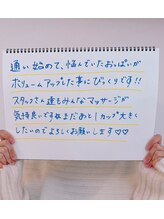 通い始めて、悩んでいたおっぱいが
ボリュームアップした事にびっくりです!!
スタッフさん達もみんなマッサージが
気持良いですねまだあと1カップ大きく
したいのでよろしくお願いします♡♡